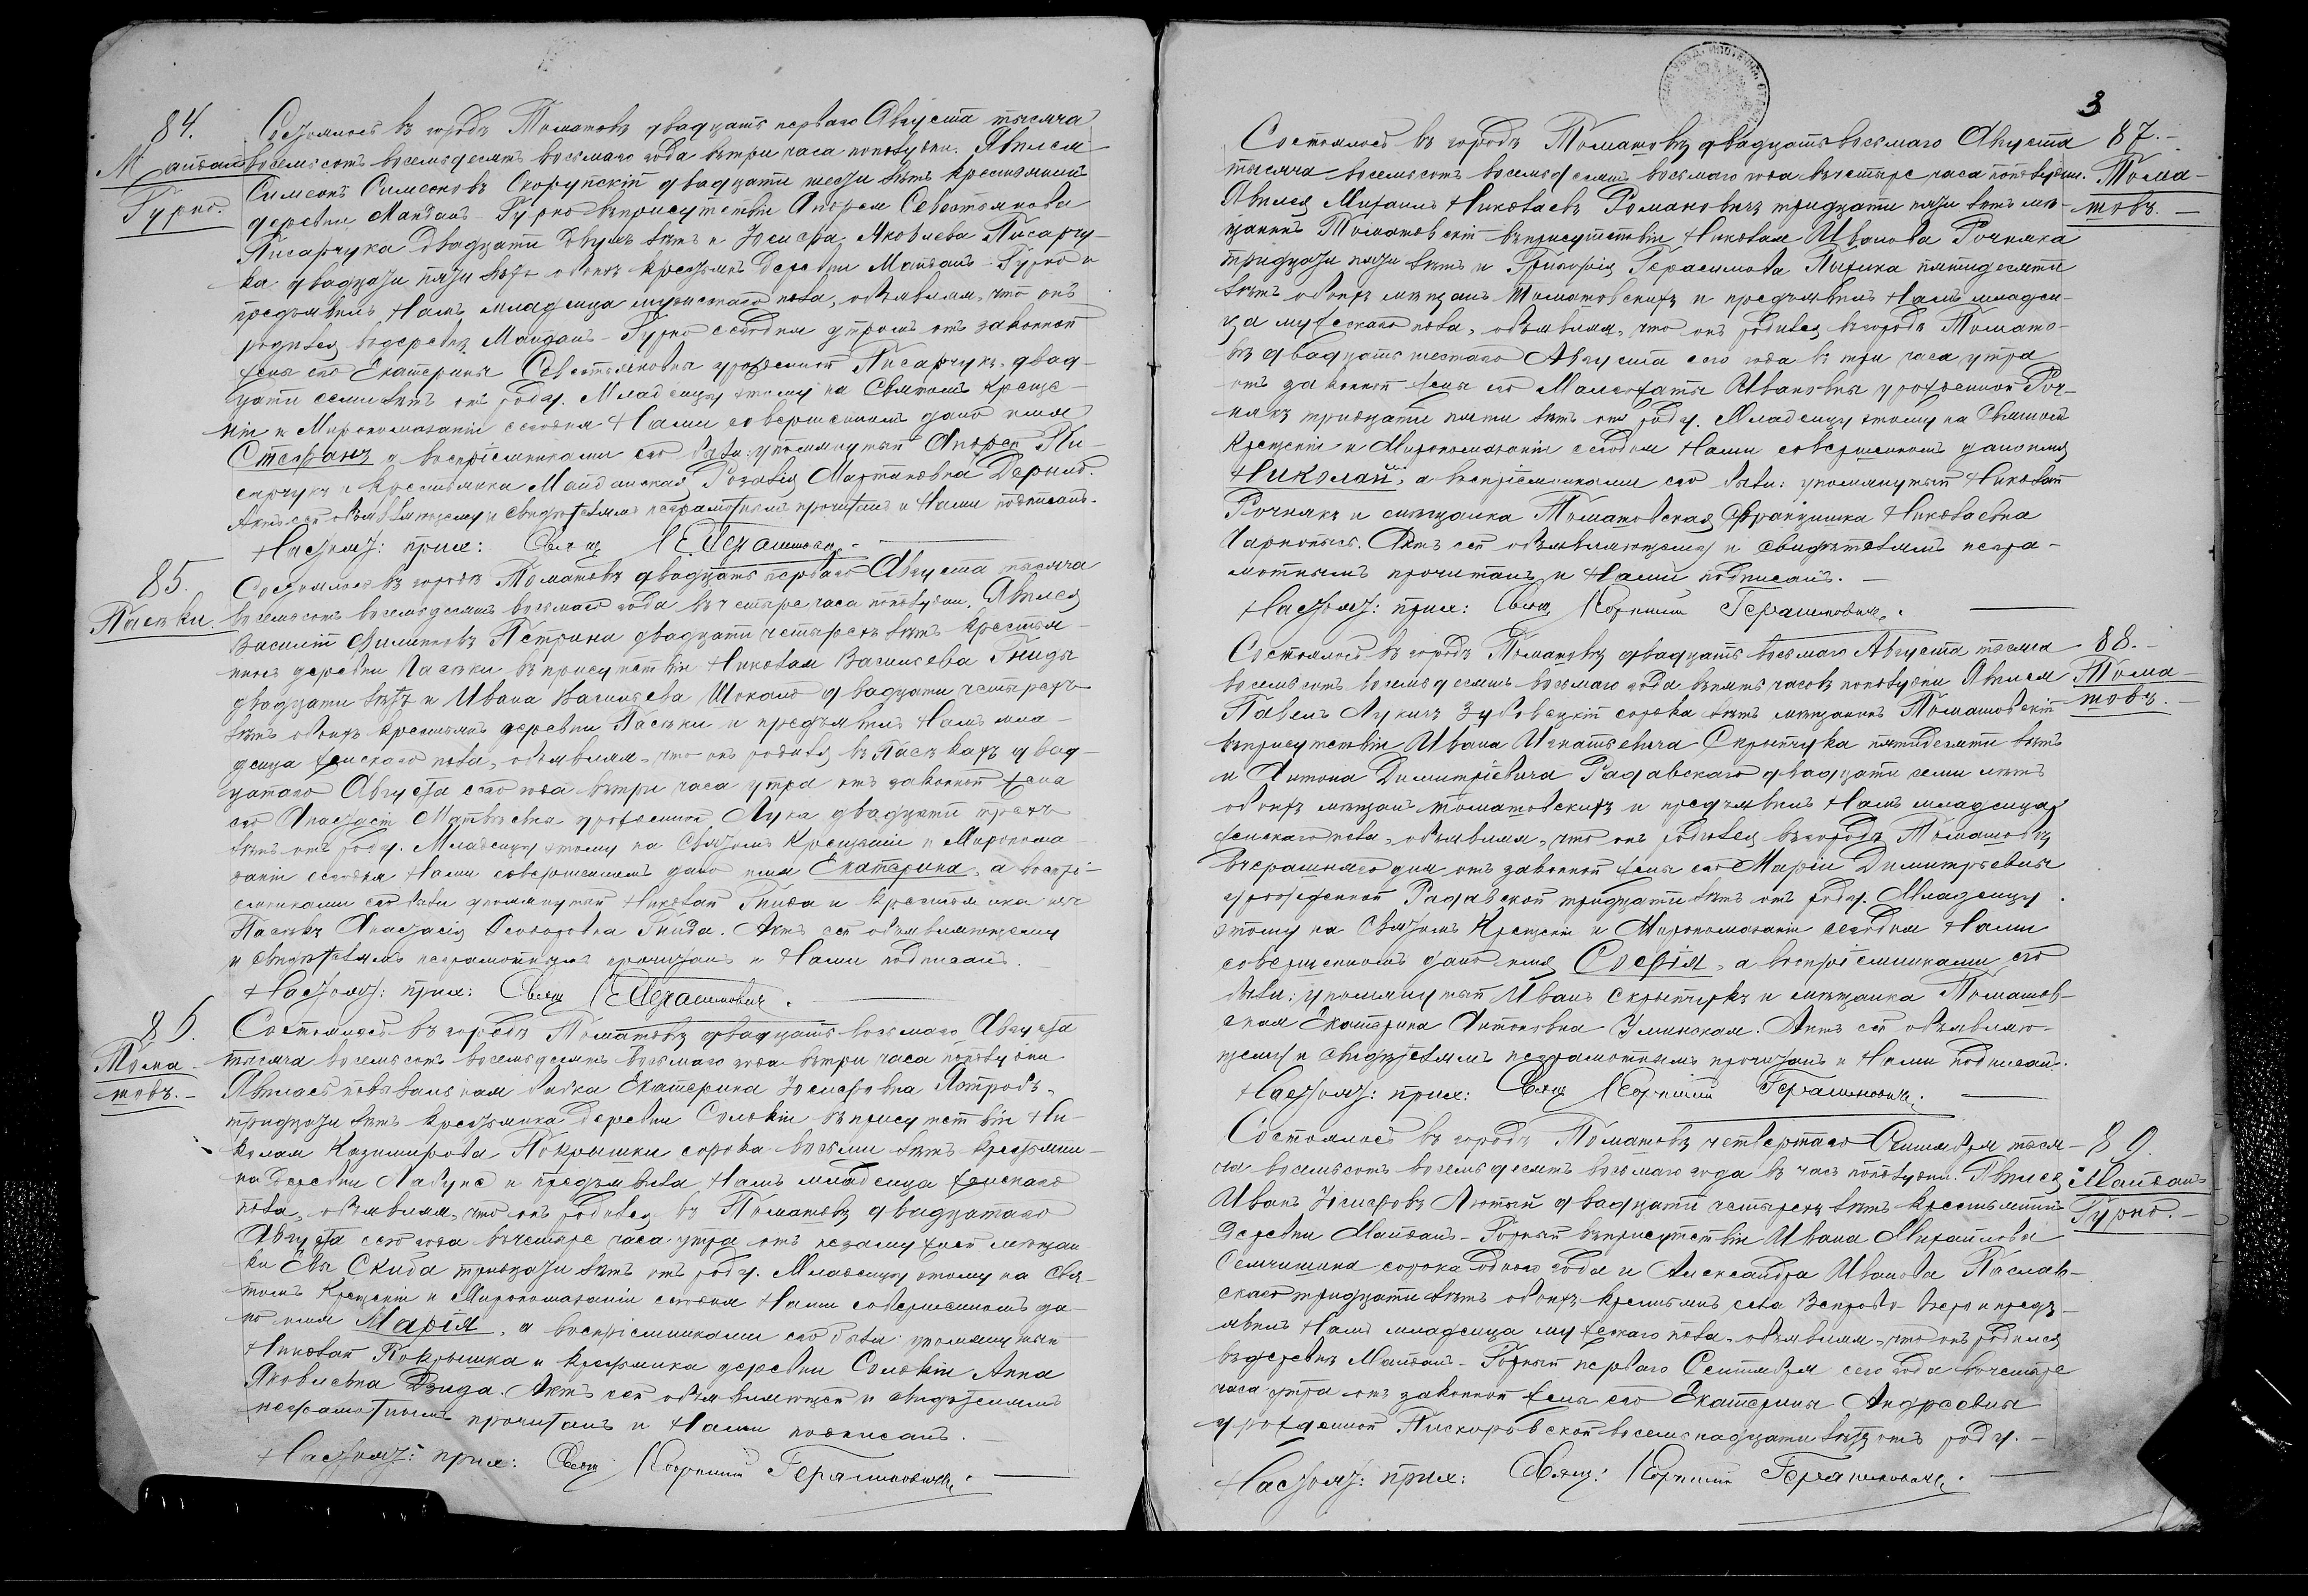 84.
Майданъ
Гурно.
Состоялось въ городѣ Томашовѣ двадцать перваго Августа тысяча
восемьсотъ восемьдесятъ восьмаго года въ три часа пополудни. Явился
Симеонъ Симеоновъ Скорупскій двадцати шести лѣтъ крестьянинъ
деревни Майданъ-Гурно въ присутствіи Андрея Севастьянова
Писарчука двадцати двухъ лѣтъ и Іосифа Яковлева Писарчу-
ка двадцати пяти лѣтъ обоихъ крестьянъ деревни Майданъ-Гурно и
предъявилъ Намъ младенца мужескаго пола, объявляя, что онъ
родился въ деревнѣ Майданъ-Гурно сегодня утромъ отъ законной
жены его Екатерины Севастьяновны урожденной Писарчукъ двад-
цати семи лѣтъ отъ роду. Младенцу этому на Святомъ Креще-
ніи и Миропомазаніи сегодня Нами совершенномъ дано имя
Стефанъ, а воспріемниками его были: упомянутый Андрей Пи-
сарчукъ и крестьянка Майданская Розалія Мартиновна
Актъ сей объявляющему и свидѣтелямъ неграмотнымъ прочитанъ и Нами подписанъ.
Настоят: прих: Свящ К Герашиновичъ.
85.
Пасѣки.
Состоялось въ городѣ Томашовѣ двадцать перваго Августа тысяча
восемьсотъ восемьдесятъ восьмаго года въ четыре часа пополудни. Явился
Василій Филипповъ Петрина двадцати четырехъ лѣтъ крестья-
нинъ деревни Пасѣки въ присутствіи Николая Васильева Гниды
двадцати лѣтъ и Ивана Васильева Шокало двадцати четырехъ
лѣтъ обоихъ крестьянъ деревни Пасѣки и предъявилъ Намъ мла-
денца женскаго пола, объявляя, что онъ родился въ Пасѣкахъ двад-
цатаго Августа сего года въ три часа утра отъ законной жены
его Анастасіи Матвѣевны урожденной Лука двадцати трехъ
лѣтъ отъ роду. Младенцу этому на Святомъ Крещеніи и Миропома-
заніи сегодня Нами совершенномъ дано имя Екатерина, а воспрі-
емниками его были упомянутый Николай Гнида и крестьянка изъ
Пасѣкъ Анастасія Ѳеодоровна Гнида. Актъ сей объявляющему
и свидѣтелямъ неграмотнымъ прочитанъ и Нами подписанъ.
Настоят: прих: Свящ К Герашиновичъ.
86.
Тома-
шовъ.
Состоялось въ городѣ Томашовѣ двадцать восьмаго Августа
тысяча восемьсотъ восемьдесятъ восьмаго года въ три часа пополудни
Явилась повивальная бабка Екатерина Іосифовна Ястробъ,
тридцати лѣтъ крестьянка деревни Солокіи въ присутствіи Ни-
колая Казимирова Покрышки сорока восьми лѣтъ крестьяни-
на деревни Лабуне и предъявила Намъ младенца женскаго
пола, объявляя, что онъ родился въ Томашовѣ двадцатаго
Августа сего года въ четыре часа утра отъ незамужней мѣщан
ки Евы Скиба тридцати лѣтъ отъ роду. Младенцу этому на Свя-
томъ Крещеніи и Миропомазаніи сегодня Нами совершенномъ да-
но имя Марія, а воспріемниками его были упомянутый
Николай Покрышка и крестьянка деревни Солокіи Анна
Яковлевна Дзида. Актъ сей объявляющей и свидѣтелямъ
неграмотнымъ прочитанъ и Нами подписанъ.
Настоят: прих: Свящ Корнилій Герашиновичъ.
3
87.
Тома-
шовъ.
Состоялось въ городѣ Томашовѣ двадцать восьмаго Августа
тысяча восемьсотъ восемьдесятъ восьмаго года въ четыре часа пополудни.
Явился Михаилъ Николаевъ Романовичъ тридцати пяти лѣтъ мѣ-
щанинъ Томашовскій въ присутствіи Николая Иванова Рочняка
тридцати пяти лѣтъ и Григорія Герасимова Пыжика пятидесяти
лѣтъ обоихъ мѣщанъ Томашовскихъ и предъявилъ Намъ младен-
ца мужескаго пола, объявляя, что онъ родился въ городѣ Томашо-
вѣ двадцать шестаго Августа сего года въ три часа утра
отъ законной жены его Маргариты Ивановны урожденной Роч-
някъ тридцати пяти лѣтъ отъ роду. Младенцу этому на Святомъ
Крещеніи и Миропомазаніи сегодня Нами совершенномъ дано имя
Николай, а воспріемниками его были: упомянутый Николай
Рочнякъ и мѣщанка Томашовская Францишка Николаевна
Чарнопысь. Актъ сей объявляющему и свидѣтелямъ негра-
мотнымъ прочитанъ и Нами подписанъ.
Настоят: прих: Свящ Корнилій Герашиновичъ.
88.
Тома-
шовъ.
Состоялось въ городѣ Томашовѣ двадцать восьмаго Августа тысяча
восемьсотъ восемьдесятъ восьмаго года въ пять часовъ пополудни Явился
Павелъ Лукичъ Зубовецкій сорока лѣтъ мѣщанинъ Томашовскій
въ присутствіи Ивана Игнатьевича Скрыпчука пятидесяти лѣтъ
и Антона Димитріевича Радавскаго двадцати семи лѣтъ
обоихъ мѣщанъ томашовскихъ и предъявилъ Намъ младенца
женскаго пола, объявляя, что онъ родился въ городѣ Томашовѣ
вчерашняго дня отъ законной жены его Маріи Димитріевны
урожденной Радавской тридцати лѣтъ отъ роду. Младенцу
этому на Святомъ Крещеніи и Миропомазаніи сегодня Нами
совершенномъ дано имя Софія, а воспріемниками его
были: упомянутый Иванъ Скрыпчукъ и мѣщанка Томашов-
ская Екатерина Антоновна Улинская. Актъ сей объявляю-
щему и свидѣтелямъ неграмотнымъ прочитанъ и Нами подписанъ.
Настоят: прих: Свящ Корнилій Герашиновичъ.
89.
Майданъ
Гурно.
Состоялось въ городѣ Томашовѣ четвертаго Сентября тыся-
ча восемьсотъ восемьдесятъ восьмаго года въ часъ пополудни. Явился
Иванъ Іосифовъ Лютый двадцати четырехъ лѣтъ крестьянинъ
деревни Майданъ-Горный въ присутствіи Ивана Михайлова
Семчишина сорока одного года и Александра Иванова Паслав-
скаго тридцати лѣтъ обоихъ крестьянъ села и предъ-
явилъ Намъ младенца мужескаго пола, объявляя, что онъ родился
въ деревнѣ Майданъ-Горный перваго Сентября сего года въ четыре
часа утра отъ законной жены его Екатерины Андреевны
урожденной Пискоровской восемьнадцати лѣтъ отъ роду.
Настоят: прих: Свящ: Корнилій Герашиновичъ.